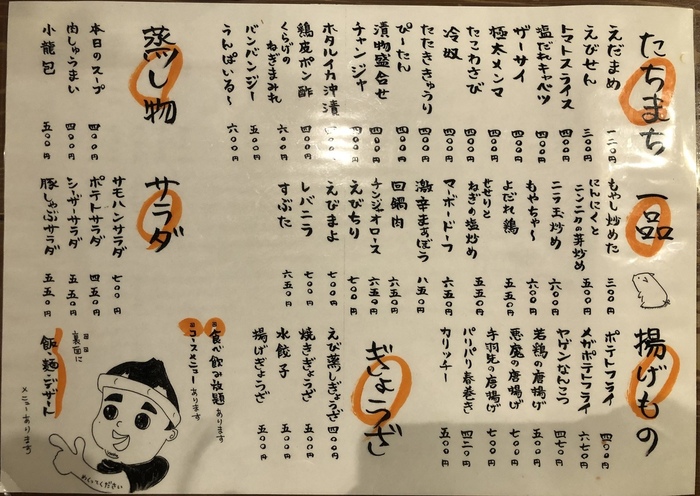 たちまち
えだまめ 一二〇円
えびせん 三〇〇円
トマトスライス 四〇〇円
塩だれキャベツ 四〇〇円
ザーサイ 四〇〇円
極太メンマ 四〇〇円
たこわさび 四〇〇円
冷奴 四〇〇円
たたききゅうり 四〇〇円
ぴーたん 四〇〇円
漬物盛合せ 四〇〇円
チャンジャ 四〇〇円
ホタルイカ沖漬
鶏皮ポン酢 四〇〇円
くらげのねぎまみれ 六〇〇円
バンバンジー 五〇〇円
うんぱいる〜 六〇〇円
蒸し物
本日のスープ 四〇〇円
肉しゅうまい 四〇〇円
小龍包 五〇〇円
一品
もやし炒めた 三〇〇円
にんにくとニンニクの芽炒め 五〇〇円
ニラ玉炒め 六〇〇円
もやちゃ〜 六〇〇円
よだれ鶏 五五〇円
せせりとねぎの塩炒め 五五〇円
マーボードーフ 六五〇円
激辛まぁぼう 八五〇円
回鍋肉 六五〇円
チンジャオロース 六五〇円
えびちり 七〇〇円
えびまよ 七〇〇円
レバニラ 七〇〇円
すぶた 六五〇円
サラダ
サモハンサラダ 七〇〇円
ポテトサラダ 四五〇円
シーザーサラダ 五五〇円
豚しゃぶサラダ 五五〇円
揚げもの
ポテトフライ 四〇〇円
メガポテトフライ 六七〇円
ヤゲンなんこつ 四七〇円
若鶏の唐揚げ 五〇〇円
悪魔の唐揚げ 七〇〇円
手羽先の唐揚げ 七〇〇円
パリパリ春巻き 四二〇円
カリッチー 四五〇円
ぎょうざ
えび蒸しぎょうざ 四〇〇円
焼きぎょうざ 五〇〇円
水餃子 五〇〇円
揚げぎょうざ 五〇〇円
食べ飲み放題あります
コースメニューあります
裏面に
飯・麺・デザート
メニューあります
めくってください